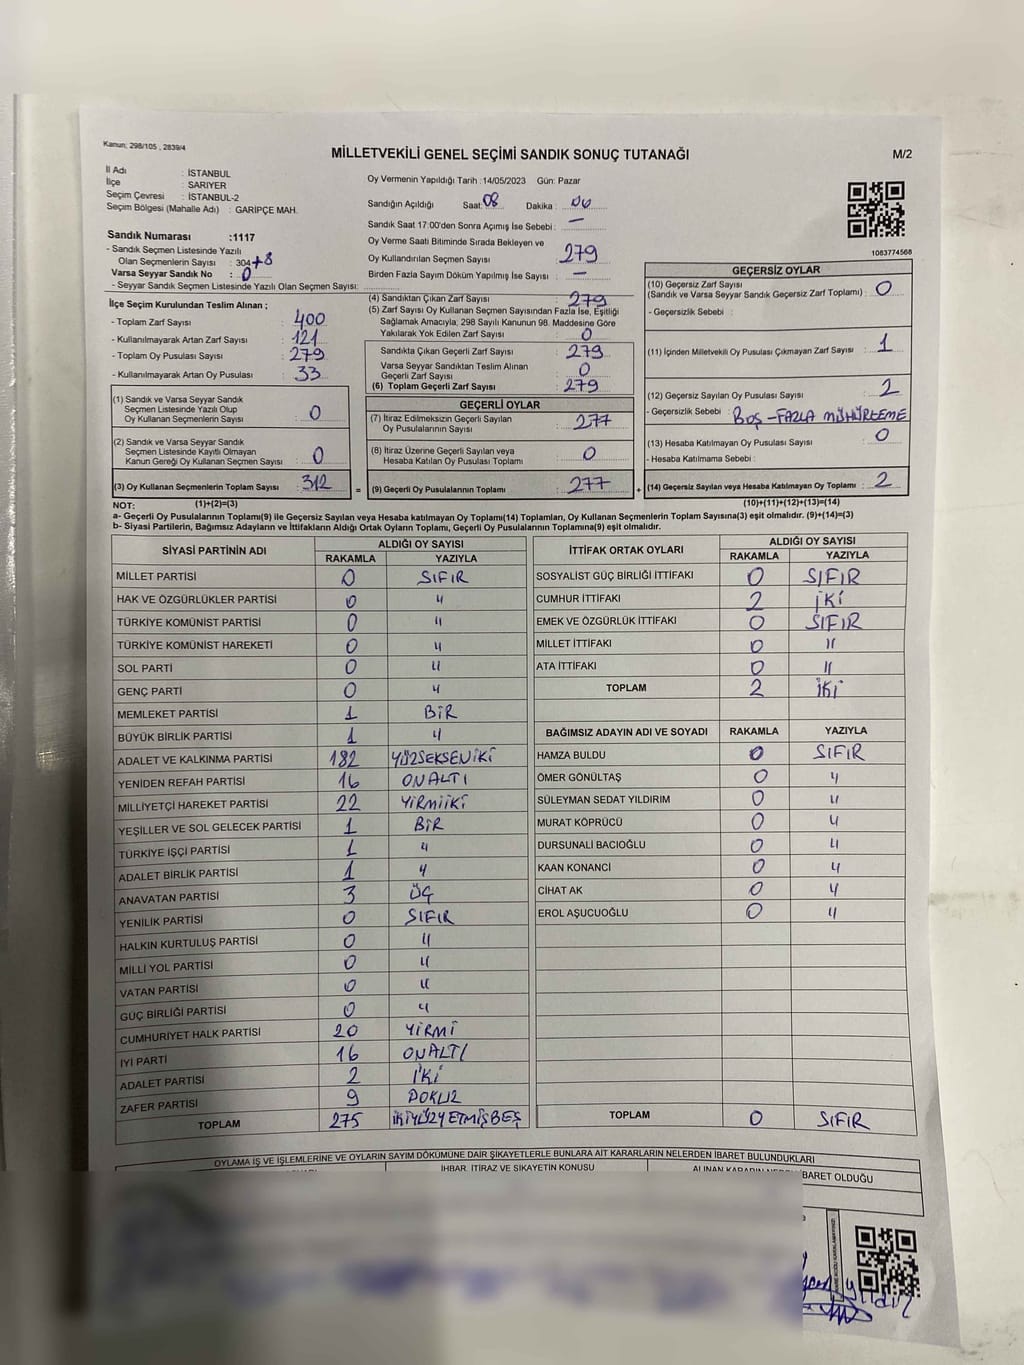 Kanun; 298/105 , 2839/4
MİLLETVEKİLİ GENEL SEÇİMİ SANDIK SONUÇ TUTANAĞI
M/2
İl Adı : İSTANBUL
İlçe : SARIYER
Seçim Çevresi : İSTANBUL-2
Seçim Bölgesi (Mahalle Adı) : GARİPÇE MAH.
Oy Vermenin Yapıldığı Tarih :14/05/2023 Gün: Pazar
Sandığın Açıldığı Saat: 08 Dakika : 00
Sandık Saat 17:00'den Sonra Açılmış İse Sebebi : —
Oy Verme Saati Bitiminde Sırada Bekleyen ve
Oy Kullandırılan Seçmen Sayısı : 279
Birden Fazla Sayım Döküm Yapılmış İse Sayısı : —
1083774568
Sandık Numarası :1117
- Sandık Seçmen Listesinde Yazılı
Olan Seçmenlerin Sayısı : 304+8
Varsa Seyyar Sandık No : 0
- Seyyar Sandık Seçmen Listesinde Yazılı Olan Seçmen Sayısı:
İlçe Seçim Kurulundan Teslim Alınan ;
- Toplam Zarf Sayısı : 400
- Kullanılmayarak Artan Zarf Sayısı : 121
- Toplam Oy Pusulası Sayısı : 279
- Kullanılmayarak Artan Oy Pusulası : 33
(1) Sandık ve Varsa Seyyar Sandık
Seçmen Listesinde Yazılı Olup
Oy Kullanan Seçmenlerin Sayısı : 0
(2) Sandık ve Varsa Seyyar Sandık
Seçmen Listesinde Kayıtlı Olmayan
Kanun Gereği Oy Kullanan Seçmen Sayısı : 0
(3) Oy Kullanan Seçmenlerin Toplam Sayısı : 312
(1)+(2)=(3)
(4) Sandıktan Çıkan Zarf Sayısı : 279
(5) Zarf Sayısı Oy Kullanan Seçmen Sayısından Fazla İse, Eşitliği
Sağlamak Amacıyla; 298 Sayılı Kanunun 98. Maddesine Göre
Yakılarak Yok Edilen Zarf Sayısı : 0
Sandıkta Çıkan Geçerli Zarf Sayısı : 279
Varsa Seyyar Sandıktan Teslim Alınan
Geçerli Zarf Sayısı : 0
(6) Toplam Geçerli Zarf Sayısı : 279
GEÇERLİ OYLAR
(7) İtiraz Edilmeksizin Geçerli Sayılan
Oy Pusulalarının Sayısı : 277
(8) İtiraz Üzerine Geçerli Sayılan veya
Hesaba Katılan Oy Pusulası Toplamı : 0
= (9) Geçerli Oy Pusulalarının Toplamı : 277 +
GEÇERSİZ OYLAR
(10) Geçersiz Zarf Sayısı
(Sandık ve Varsa Seyyar Sandık Geçersiz Zarf Toplamı) : 0
- Geçersizlik Sebebi :
(11) İçinden Milletvekili Oy Pusulası Çıkmayan Zarf Sayısı : 1
(12) Geçersiz Sayılan Oy Pusulası Sayısı : 2
- Geçersizlik Sebebi : BOŞ - FAZLA MÜHÜRLEME
(13) Hesaba Katılmayan Oy Pusulası Sayısı : 0
- Hesaba Katılmama Sebebi :
(14) Geçersiz Sayılan veya Hesaba Katılmayan Oy Toplamı : 2
(10)+(11)+(12)+(13)=(14)
NOT:
a- Geçerli Oy Pusulalarının Toplamı(9) ile Geçersiz Sayılan veya Hesaba katılmayan Oy Toplamı(14) Toplamları, Oy Kullanan Seçmenlerin Toplam Sayısına(3) eşit olmalıdır. (9)+(14)=(3)
b- Siyasi Partilerin, Bağımsız Adayların ve İttifakların Aldığı Oyların Toplamı, Geçerli Oy Pusulalarının Toplamına(9) eşit olmalıdır.
SİYASİ PARTİNİN ADI ALDIĞI OY SAYISI
RAKAMLA YAZIYLA
MİLLET PARTİSİ 0 SIFIR
HAK VE ÖZGÜRLÜKLER PARTİSİ 0 "
TÜRKİYE KOMÜNİST PARTİSİ 0 "
TÜRKİYE KOMÜNİST HAREKETİ 0 "
SOL PARTİ 0 "
GENÇ PARTİ 0 "
MEMLEKET PARTİSİ 1 BİR
BÜYÜK BİRLİK PARTİSİ 1 "
ADALET VE KALKINMA PARTİSİ 182 YÜZSEKSENİKİ
YENİDEN REFAH PARTİSİ 16 ONALTI
MİLLİYETÇİ HAREKET PARTİSİ 22 YİRMİİKİ
YEŞİLLER VE SOL GELECEK PARTİSİ 1 BİR
TÜRKİYE İŞÇİ PARTİSİ 1 "
ADALET BİRLİK PARTİSİ 1 "
ANAVATAN PARTİSİ 3 ÜÇ
YENİLİK PARTİSİ 0 SIFIR
HALKIN KURTULUŞ PARTİSİ 0 "
MİLLİ YOL PARTİSİ 0 "
VATAN PARTİSİ 0 "
GÜÇ BİRLİĞİ PARTİSİ 0 "
CUMHURİYET HALK PARTİSİ 20 YİRMİ
İYİ PARTİ 16 ONALTI
ADALET PARTİSİ 2 İKİ
ZAFER PARTİSİ 9 DOKUZ
TOPLAM 275 İKİYÜZYETMİŞBEŞ
İTTİFAK ORTAK OYLARI ALDIĞI OY SAYISI
RAKAMLA YAZIYLA
SOSYALİST GÜÇ BİRLİĞİ İTTİFAKI 0 SIFIR
CUMHUR İTTİFAKI 2 İKİ
EMEK VE ÖZGÜRLÜK İTTİFAKI 0 SIFIR
MİLLET İTTİFAKI 0 "
ATA İTTİFAKI 0 "
TOPLAM 2 İKİ
BAĞIMSIZ ADAYIN ADI VE SOYADI RAKAMLA YAZIYLA
HAMZA BULDU 0 SIFIR
ÖMER GÖNÜLTAŞ 0 "
SÜLEYMAN SEDAT YILDIRIM 0 "
MURAT KÖPRÜCÜ 0 "
DURSUNALİ BACIOĞLU 0 "
KAAN KONANCİ 0 "
CİHAT AK 0 "
EROL AŞUCUOĞLU 0 "
TOPLAM 0 SIFIR
OYLAMA İŞ VE İŞLEMLERİNE VE OYLARIN SAYIM DÖKÜMÜNE DAİR ŞİKAYETLERLE BUNLARA AİT KARARLARIN NELERDEN İBARET BULUNDUKLARI
İHBAR, İTİRAZ VE ŞİKAYETİN KONUSU
ALINAN KARARIN NEDEN İBARET OLDUĞU